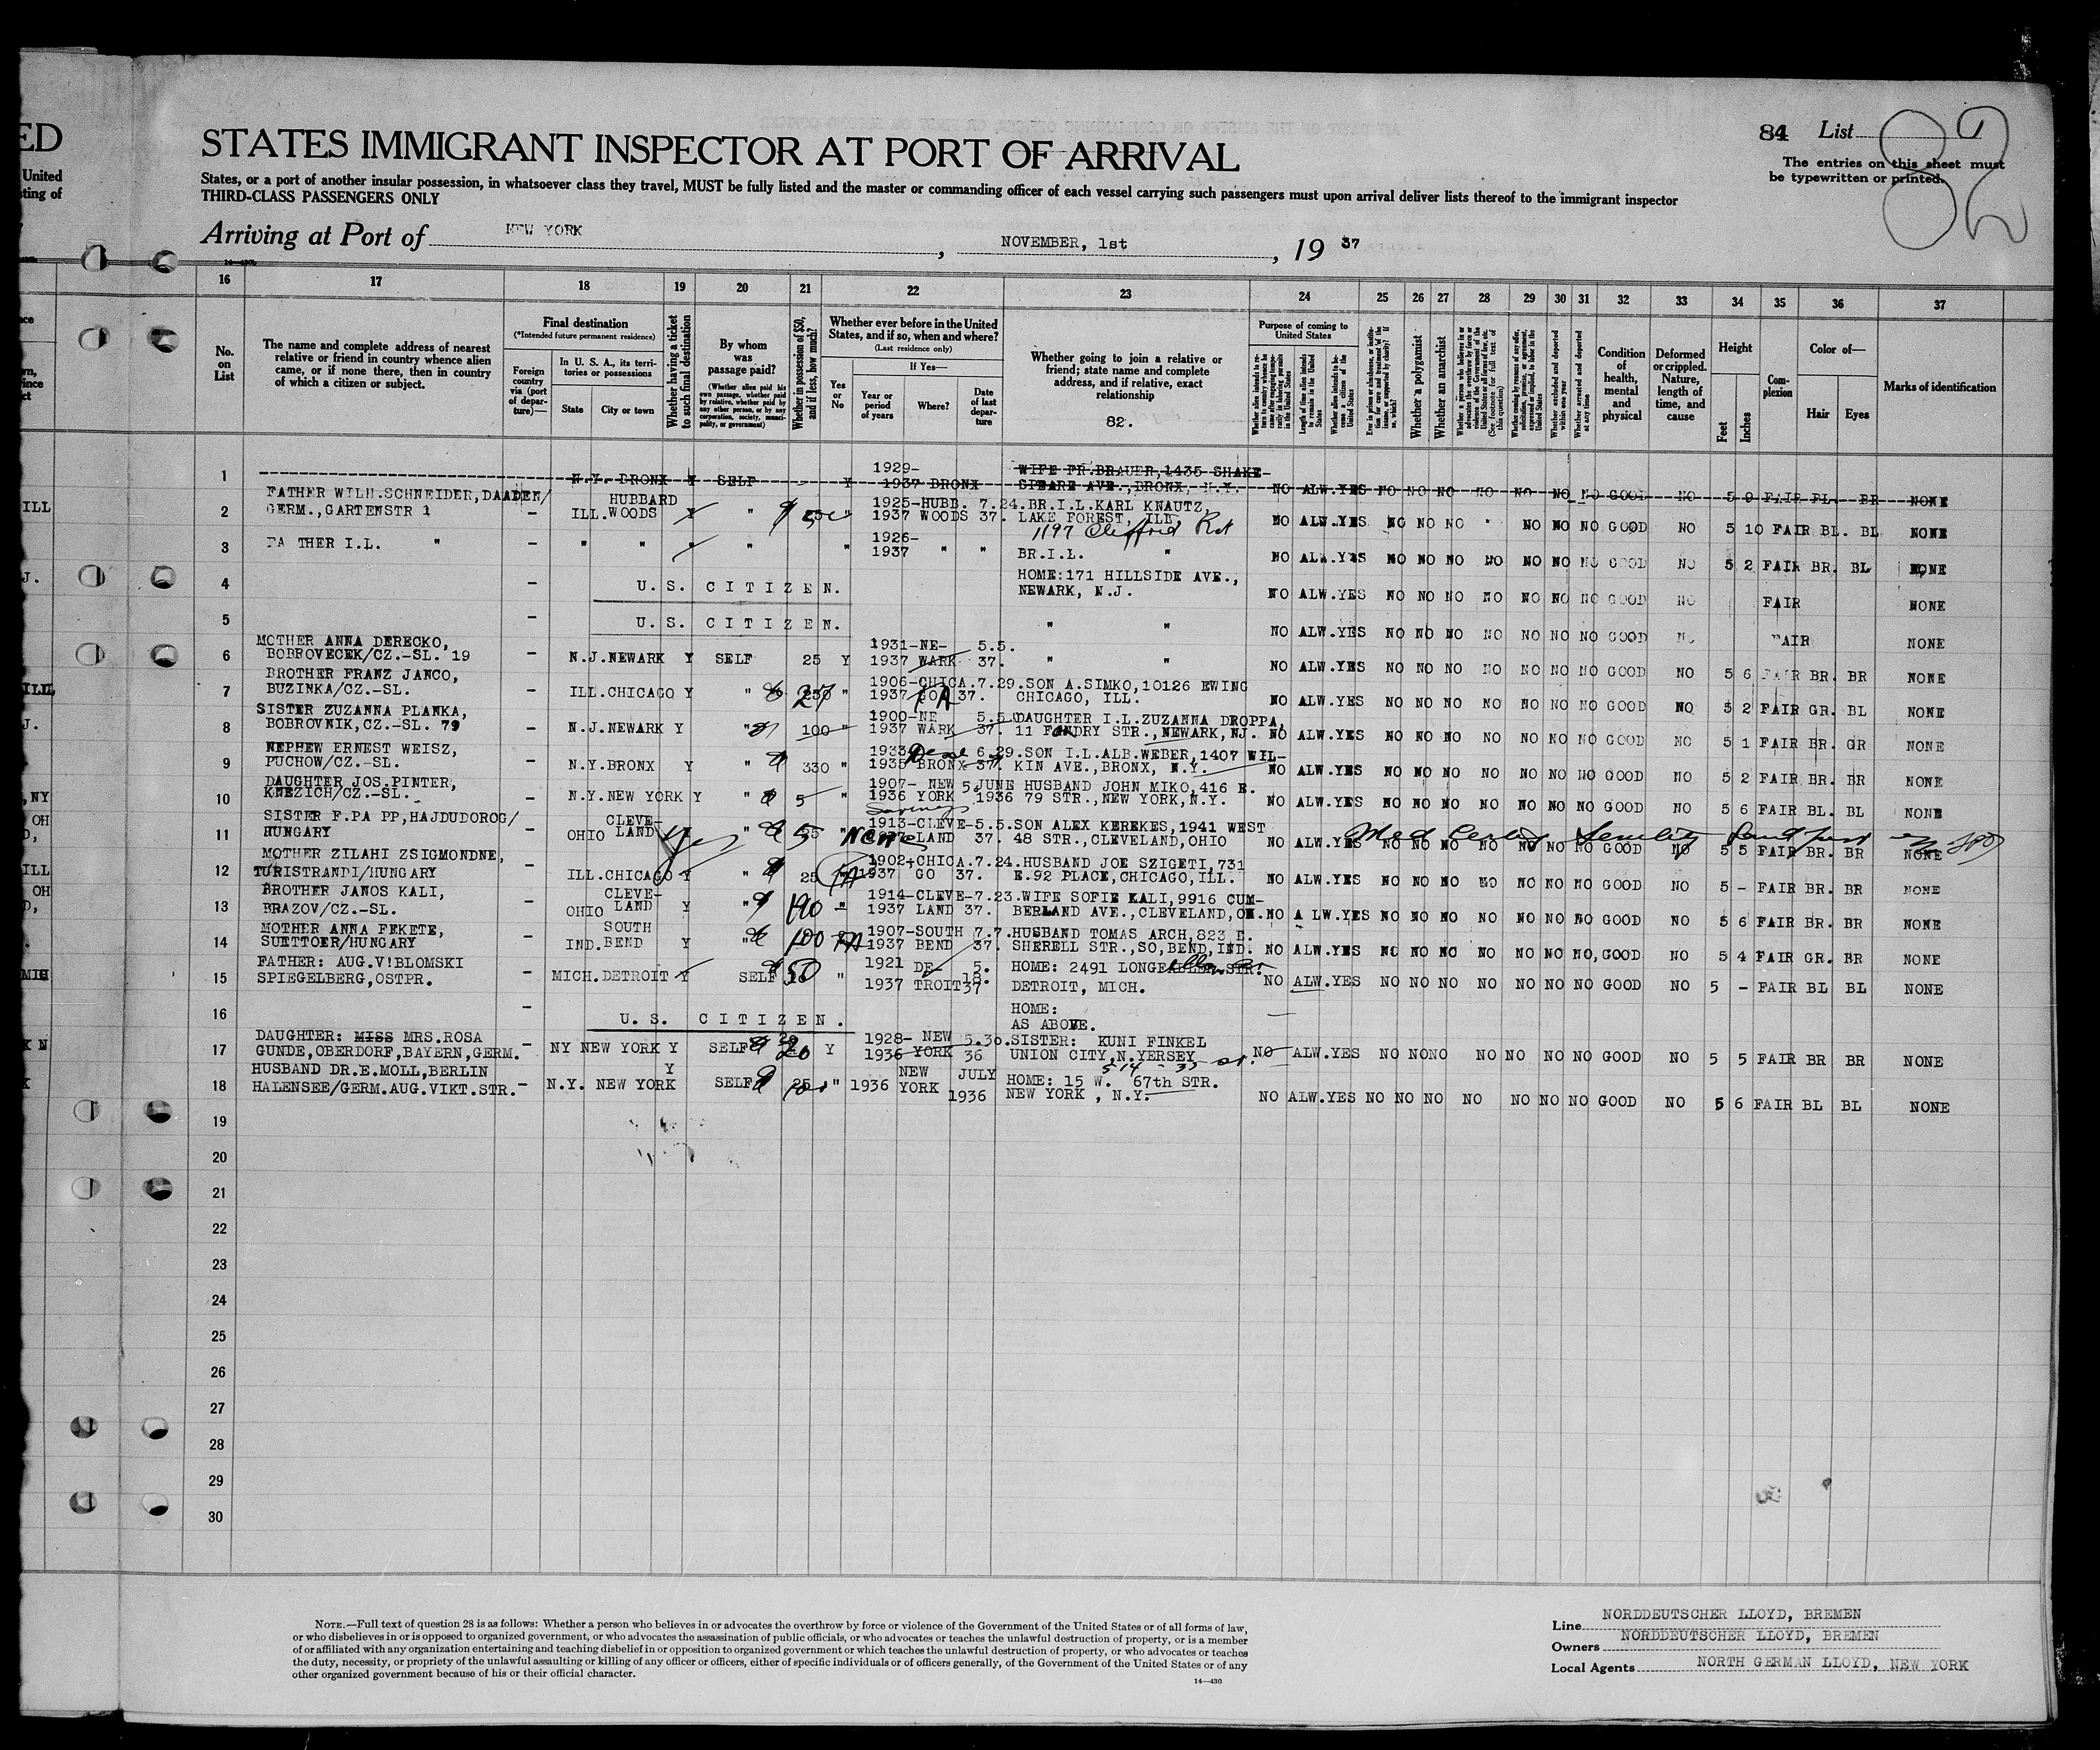 ED
United
sting of
84 List
82
The entries on this sheet must
be typewritten or printed.
STATES IMMIGRANT INSPECTOR AT PORT OF ARRIVAL
States, or a port of another insular possession, in whatsoever class they travel, MUST be fully listed and the master or commanding officer of each vessel carrying such passengers must upon arrival deliver lists thereof to the immigrant inspector
THIRD-CLASS PASSENGERS ONLY
Arriving at Port of NEW YORK , NOVEMBER, 1st , 19 37
16 17 18 19 20 21 22 23 24 25 26 27 28 29 30 31 32 33 34 35 36 37
No. on List
The name and complete address of nearest relative or friend in country whence alien came, or if none there, then in country of which a citizen or subject.
Final destination
(*Intended future permanent residence)
Foreign country via (port of departure)—
In U. S. A., its territories or possessions
State City or town
Whether having a ticket to such final destination
By whom was passage paid?
(Whether alien paid his own passage, whether paid by relative, whether paid by any other person, or by any corporation, society, municipality, or government)
Whether in possession of $50, and if less, how much?
Whether ever before in the United States, and if so, when and where?
(Last residence only)
Yes or No
If Yes—
Year or period of years
Where?
Date of last departure
Whether going to join a relative or friend; state name and complete address, and if relative, exact relationship
82.
Purpose of coming to United States
Length of time alien intends to remain in the United States
Whether alien intends to become a citizen of the United States
Whether a polygamist
Whether an anarchist
(See footnote for full text of this question)
Whether arrested and deported at any time
Condition of health, mental and physical
Deformed or crippled. Nature, length of time, and cause
Height
Feet Inches
Complexion
Color of—
Hair Eyes
Marks of identification
1 N.Y. BRONX Y SELF Y 1929-1937 BRONX WIFE FR.BRAUER,1435 SHAKE-
SPEARE AVE.,BRONX, N.Y. NO ALW.YES NO NO NO NO NO NO NO GOOD NO 5 9 FAIR BL. BR NONE
2 FATHER WILH.SCHNEIDER,DAADEN/
GERM.,GARTENSTR 1 - ILL. HUBBARD WOODS Y " 1925-HUBB. 7.24. 1937 WOODS 37. BR.I.L.KARL KNAUTZ,
LAKE FOREST, ILL. NO ALW.YES NO NO NO " NO NO NO GOOD NO 5 10 FAIR BL. BL NONE
1197
3 FA THER I.L. " - " " " " 1926-1937 " " BR.I.L. " NO ALW.YES NO NO NO NO NO NO NO GOOD NO 5 2 FAIR BR. BL NONE
4 - U. S. CITIZEN. HOME:171 HILLSIDE AVE.,
NEWARK, N.J. NO ALW.YES NO NO NO NO NO NO NO GOOD NO FAIR NONE
5 - U. S. CITIZEN. " " NO ALW.YES NO NO NO NO NO NO NO GOOD NO FAIR NONE
6 MOTHER ANNA DERECKO,
BOBROVECEK/CZ.-SL. 19 - N.J.NEWARK Y SELF 25 Y 1931-NE- 5.5. 1937 WARK 37. " " NO ALW.YES NO NO NO NO NO NO NO GOOD NO 5 6 FAIR BR. BR NONE
7 BROTHER FRANZ JANCO,
BUZINKA/CZ.-SL. - ILL.CHICAGO Y " 27 " 1906-CHICA.7.29. 1937 GO 37. SON A.SIMKO,10126 EWING
CHICAGO, ILL. NO ALW.YES NO NO NO NO NO NO NO GOOD NO 5 2 FAIR GR. BL NONE
8 SISTER ZUZANNA PLANKA,
BOBROVNIK,CZ.-SL. 79 - N.J.NEWARK Y " 100 " 1900-NE 5.5. 1937 WARK 37. DAUGHTER I.L.ZUZANNA DROPPA,
11 FONDRY STR.,NEWARK,NJ. NO ALW.YES NO NO NO NO NO NO NO GOOD NO 5 1 FAIR BR. GR NONE
9 NEPHEW ERNEST WEISZ,
PUCHOW/CZ.-SL. - N.Y.BRONX Y " 330 " 1933 1935 BRONX 6.29. 37. SON I.L.ALB.WEBER,1407 WIL-
KIN AVE.,BRONX, N.Y. NO ALW.YES NO NO NO NO NO NO NO GOOD NO 5 2 FAIR BR. BR NONE
10 DAUGHTER JOS.PINTER,
KNEZICH/CZ.-SL. - N.Y.NEW YORK Y " 5 " 1907- NEW 5.JUNE 1936 YORK 1936 HUSBAND JOHN MIKO,416 E.
79 STR.,NEW YORK,N.Y. NO ALW.YES NO NO NO NO NO NO NO GOOD NO 5 6 FAIR BL. BL NONE
11 SISTER F.PA PP,HAJDUDOROG/
HUNGARY - OHIO CLEVE-LAND yes " None 1913-CLEVE-5.5. 1937 LAND 37. SON ALEX KEREKES,1941 WEST
48 STR.,CLEVELAND,OHIO NO ALW.YES NO NO NO NO NO NO NO GOOD NO 5 5 FAIR BR. BR NONE
Med Senility
12 MOTHER ZILAHI ZSIGMONDNE,
TURISTRANDI/HUNGARY - ILL.CHICAGO Y " 25 1902-CHICA.7.24. 1937 GO 37. HUSBAND JOE SZIGETI,731
E.92 PLACE,CHICAGO,ILL. NO ALW.YES NO NO NO NO NO NO NO GOOD NO 5 - FAIR BR. BR NONE
13 BROTHER JANOS KALI,
BRAZOV/CZ.-SL. - OHIO CLEVE-LAND Y " 190 " 1914-CLEVE-7.23. 1937 LAND 37. WIFE SOFIE KALI,9916 CUM-
BERLAND AVE.,CLEVELAND,OH. NO A LW.YES NO NO NO NO NO NO NO GOOD NO 5 6 FAIR BR. BR NONE
14 MOTHER ANNA FEKETE,
SUETTOER/HUNGARY - IND. SOUTH BEND Y " 100 1907-SOUTH 7.7. 1937 BEND 37. HUSBAND TOMAS ARCH,823 E.
SHERELL STR.,SO,BEND,IND. NO ALW.YES NO NO NO NO NO NO NO,GOOD NO 5 4 FAIR GR. BR NONE
15 FATHER: AUG.V!BLOMSKI
SPIEGELBERG,OSTPR. - MICH.DETROIT Y SELF 50 " 1921 DE- 5. 1937 TROIT 18. 37 HOME: 2491
DETROIT, MICH. NO ALW.YES NO NO NO NO NO NO NO GOOD NO 5 - FAIR BL BL NONE
16 - U. S. CITIZEN. HOME:
AS ABOVE.
17 DAUGHTER: MISS MRS.ROSA
GUNDE,OBERDORF,BAYERN,GERM. - NY NEW YORK Y SELF 20 Y 1928- NEW 5.30. 1936 YORK 36 SISTER: KUNI FINKEL
UNION CITY,N.YERSEY NO ALW.YES NO NONO NO NO NO NO GOOD NO 5 5 FAIR BR BR NONE
514 - 37 st.
18 HUSBAND DR.E.MOLL,BERLIN
HALENSEE/GERM.AUG.VIKT.STR. - N.Y. NEW YORK Y SELF " 1936 NEW YORK JULY 1936 HOME: 15 W. 67th STR.
NEW YORK , N.Y. NO ALW.YES NO NO NO NO NO NO NO GOOD NO 5 6 FAIR BL BL NONE
19
20
21
22
23
24
25
26
27
28
29
30
NOTE.—Full text of question 28 is as follows: Whether a person who believes in or advocates the overthrow by force or violence of the Government of the United States or of all forms of law,
or who disbelieves in or is opposed to organized government, or who advocates the assassination of public officials, or who advocates or teaches the unlawful destruction of property, or is a member
of or affiliated with any organization entertaining and teaching disbelief in or opposition to organized government or which teaches the unlawful destruction of property, or who advocates or teaches
the duty, necessity, or propriety of the unlawful assaulting or killing of any officer or officers, either of specific individuals or of officers generally, of the Government of the United States or of any
other organized government because of his or their official character.
14—430
Line NORDDEUTSCHER LLOYD, BREMEN
Owners NORDDEUTSCHER LLOYD, BREMEN
Local Agents NORTH GERMAN LLOYD, NEW YORK